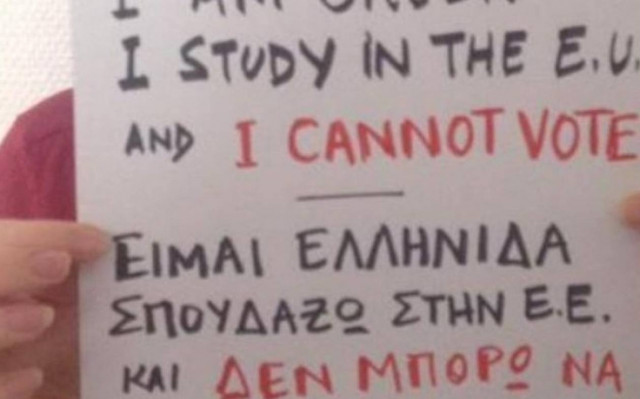 I AM GREEK
I STUDY IN THE E.U.
AND I CANNOT VOTE
ΕΙΜΑΙ ΕΛΛΗΝΙΔΑ
ΣΠΟΥΔΑΖΩ ΣΤΗΝ Ε.Ε.
ΚΑΙ ΔΕΝ ΜΠΟΡΩ ΝΑ